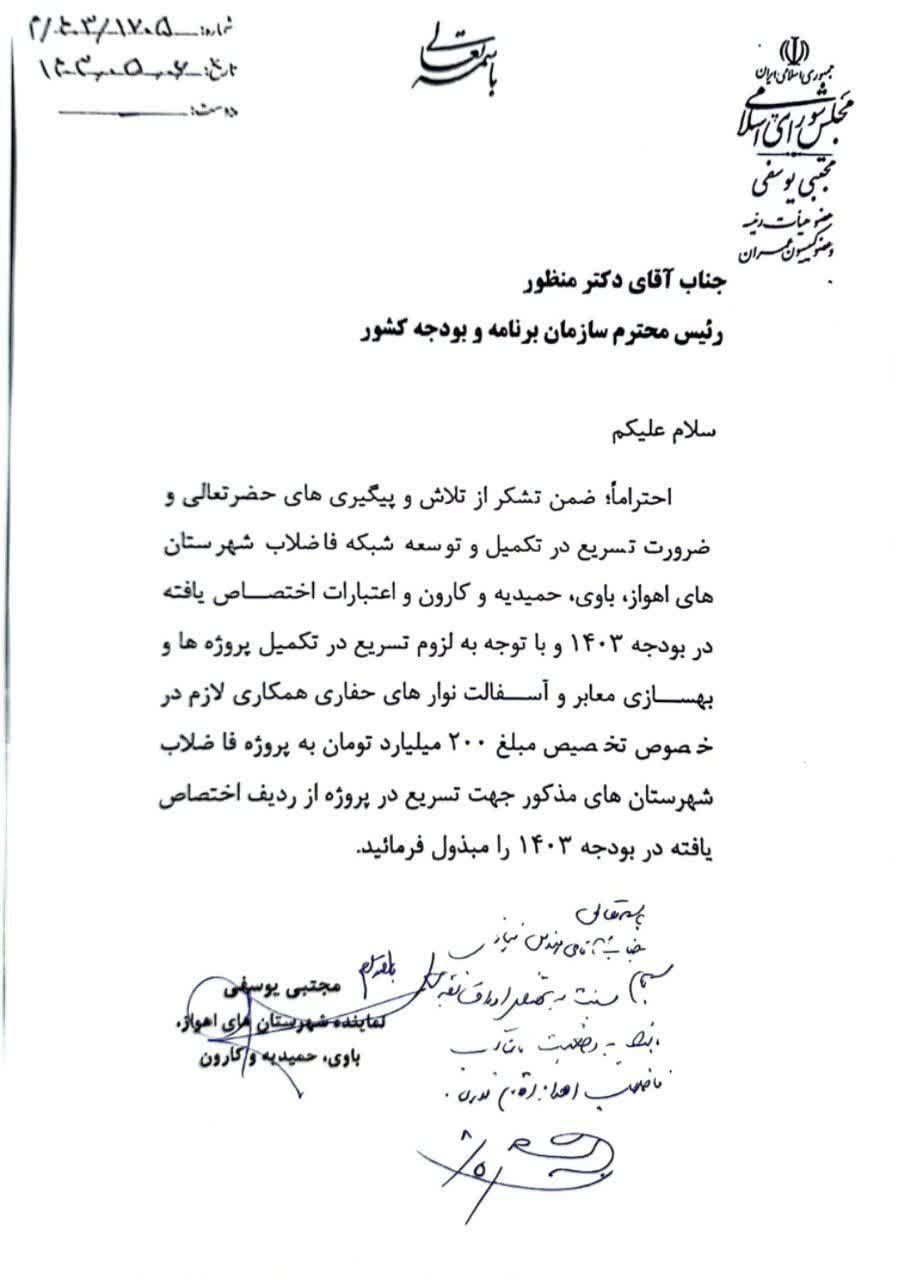 باسمه تعالی
جمهوری اسلامی ایران
مجلس شورای اسلامی
مجتبی یوسفی
عضو هیأت رئیسه
و عضو کمیسیون عمران
شماره: ۱۷۰۵/۴۰۳/م
تاریخ: ۱۴۰۳.۵.۶
پیوست:
جناب آقای دکتر منظور
رئیس محترم سازمان برنامه و بودجه کشور
سلام علیکم
احتراماً؛ ضمن تشکر از تلاش و پیگیری های حضرتعالی و
ضرورت تسریع در تکمیل و توسعه شبکه فاضلاب شهرستان
های اهواز، باوی، حمیدیه و کارون و اعتبارات اختصاص یافته
در بودجه ۱۴۰۳ و با توجه به لزوم تسریع در تکمیل پروژه ها و
بهسازی معابر و آسفالت نوار های حفاری همکاری لازم در
خصوص تخصیص مبلغ ۲۰۰ میلیارد تومان به پروژه فاضلاب
شهرستان های مذکور جهت تسریع در پروژه از ردیف اختصاص
یافته در بودجه ۱۴۰۳ را مبذول فرمائید.
مجتبی یوسفی
نماینده شهرستان های اهواز،
باوی، حمیدیه و کارون
باسمه تعالی
جناب آقای مهندس
نسبت به تخصیص اوراق
فاضلاب اهواز اقدام
۵/۸